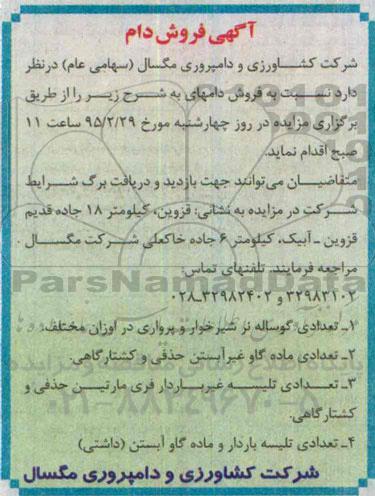 آگهی فروش دام
شرکت کشاورزی و دامپروری مگسال (سهامی عام) درنظر
دارد نسبت به فروش دامهای به شرح زیر را از طریق
برگزاری مزایده در روز چهارشنبه مورخ ۹۵/۲/۲۹ ساعت ۱۱
صبح اقدام نماید.
متقاضیان می‌توانند جهت بازدید و دریافت برگ شرایط
شرکت در مزایده به نشانی: قزوین، کیلومتر ۱۸ جاده قدیم
قزوین ـ آبیک، کیلومتر ۶ جاده خاکعلی شرکت مگسال
مراجعه فرمایند. تلفنهای تماس:
۳۲۹۸۳۱۰۲ و ۳۲۹۸۲۴۰۲ـ۰۲۸
۱ـ تعدادی گوساله نر شیرخوار و پرواری در اوزان مختلف.
۲ـ تعدادی ماده گاو غیرآبستن حذفی و کشتارگاهی.
۳ـ تعدادی تلیسه غیرباردار فری مارتین حذفی و
کشتارگاهی.
۴ـ تعدادی تلیسه باردار و ماده گاو آبستن (داشتی)
شرکت کشاورزی و دامپروری مگسال
ParsNamadData
۰۲۱-۸۸۳۴۹۶۷۰-۵